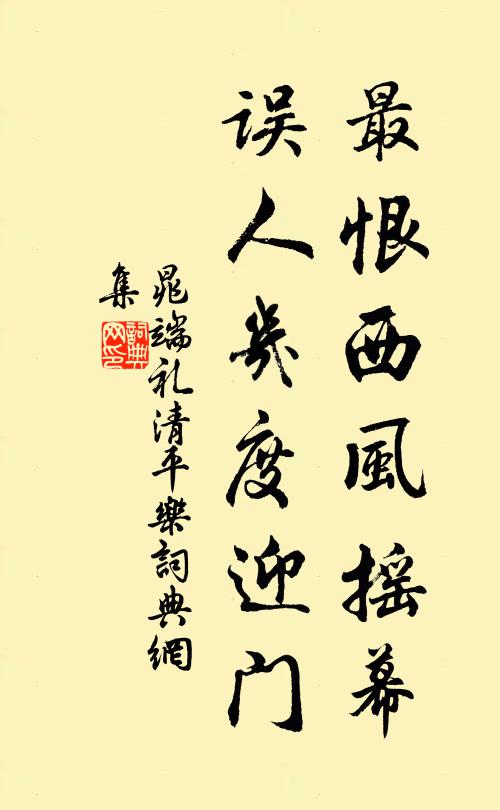 最恨西風摇幕
误人幾度迎门
晁端礼清平樂詞典網
集
詞典网印